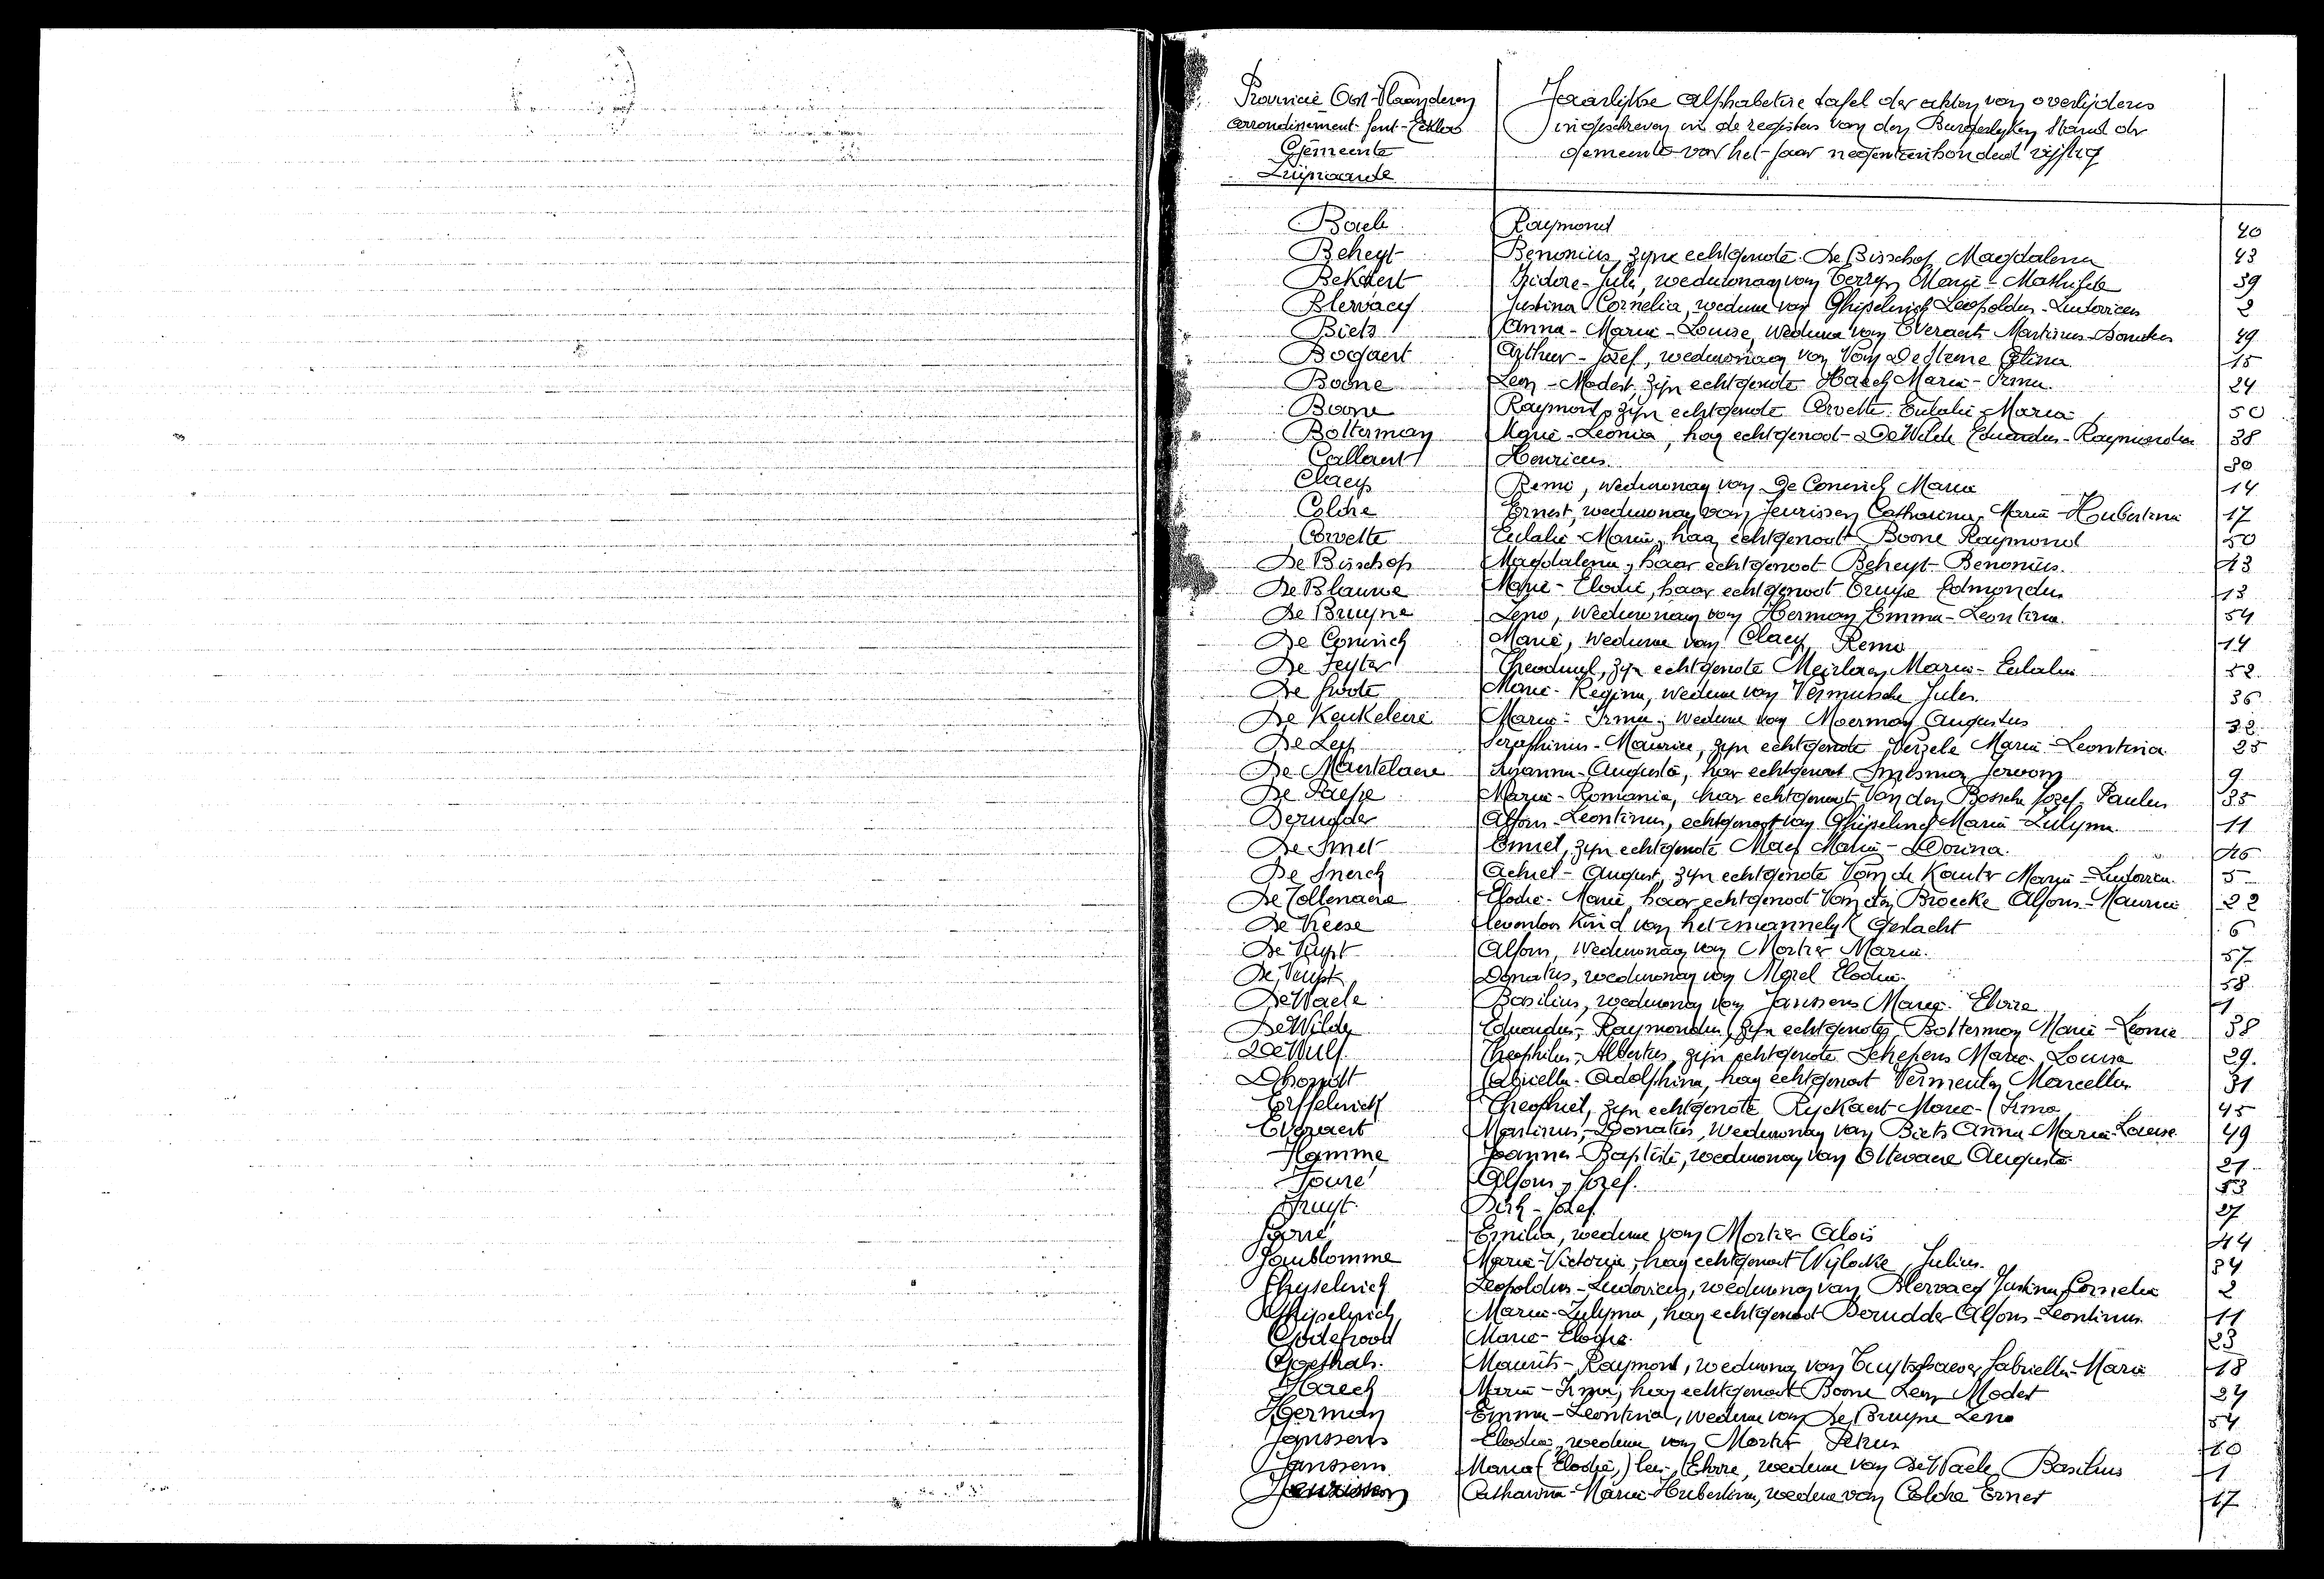 Provincie Oost-Vlaanderen
arrondissement Gent-Eekloo
Gemeente
Zuipnaarde
Jaarlijkse alphabetise tafel der akten van overlijdens
ingeschreven in de registers van den Burgerlyken Stand der
gemeente voor het jaar negentienhonderd vijftig
Baele Raymond 40
Beheyt Benonius, zyne echtgenote De Bisschop Magdalena 43
Bekaert Isidore-Jule, weduwnaar van Terryn Marie-Mathilde 39
Blervacq Justina Cornelia, weduwe van Ghyselinck Leopoldus-Ludovicus 2
Biets Anna-Maria-Louise, weduwe van Everaert Martinus-Donatus 49
Bogaert Arthur-Jozef, weduwnaar van Van De Steene Celina 15
Boone Leon-Modest, zijn echtgenote Haeck Maria-Irma 24
Boone Raymond, zijn echtgenote Corvette Eulalie-Maria 50
Bolterman Marie-Leonia, haar echtgenoot De Wilde Eduardus-Raymondus 38
Callaert Henricus 30
Claeys Remi, weduwnaar van De Coninck Maria 14
Colche Ernest, weduwnaar van Jeurissen Catharina, Maria-Hubertina 17
Corvette Eulalie-Maria, haar echtgenoot Boone Raymond 50
De Bisschop Magdalena, haar echtgenoot Beheyt Benonius 43
De Blauwe Marie-Elodie, haar echtgenoot Edmondus 13
De Bruyne Leno, weduwnaar van Herman Emma-Leontina 54
De Coninck Marie, weduwe van Claeys Remi 14
De Feyter Theoduul, zijn echtgenote Meirlaen Maria-Eulalia 52
De Groote Marie-Regina, weduwe van Vermeersche Jules 36
De Keukeleire Maria-Irma, weduwe van Moerman Augustus 32
De Ley Seraphinus-Maurice, zijn echtgenote Verzele Maria-Leontina 25
De Mantelaere Suzanna-Augusta, haar echtgenoot 9
De Paepe Maria-Romania, haar echtgenoot Van den Bossche Jozef-Paulus 35
Derudder Alfons-Leontinus, echtgenoot van Ghyselinck Maria-Zulyma 11
De Smet Emiel, zijn echtgenote Maes Maria-Dorina 46
De Snerck Achiel-August, zijn echtgenote Van de Kauter Maria-Ludovica 5
De Tollenaere Elodie-Marie, haar echtgenoot Van den Broecke Alfons-Maurice 22
De Vreese levenloos kind van het mannelyk geslacht 6
De Vuyst Alfons, weduwnaar van Mortier Maria 57
De Vuyst Donatus, weduwnaar van Morel Elodie 58
De Waele Basilius, weduwnaar van Janssens Marie-Elvire 1
De Wilde Eduardus-Raymondus, zijn echtgenote Bolterman Marie-Leonie 38
De Wulf Theophilus-Albertus, zijn echtgenote Schepens Maria-Louisa 29
Dhondt Gabriella-Adolphina, haar echtgenoot Vermeulen Marcellus 31
Erffelinck Theophiel, zijn echtgenote Ryckaert Marie-Irma 45
Everaert Martinus-Donatus, weduwnaar van Biets Anna-Maria-Louise 49
Hamme Joannes-Baptiste, weduwnaar van Ottevaere Augusta 21
Fouré Alfons-Jozef 53
Fruyt Dirk-Jozef 27
Gorré Emilia, weduwe van Mortier Alois 44
Goublomme Marie-Victorie, haar echtgenoot Wylocke Julius 34
Ghyselinck Leopoldus-Ludovicus, weduwnaar van Blervacq Justina Cornelia 2
Ghyselinck Maria-Zulyma, haar echtgenoot Derudder Alfons-Leontinus 11
Godefroot Marie-Elodie 23
Goethals Maurits-Raymond, weduwnaar van Tuytschaever Gabriella-Maria 18
Haeck Maria-Irma, haar echtgenoot Boone Leon Modest 24
Herman Emma-Leontina, weduwe van De Bruyne Leno 54
Janssens Elodie, weduwe van Mortier Petrus 10
Janssens Maria (Elodie,) lees, Elvire, weduwe van De Waele Basilius 1
Jeurissen Catharina-Maria-Hubertina, weduwe van Colche Ernest 17